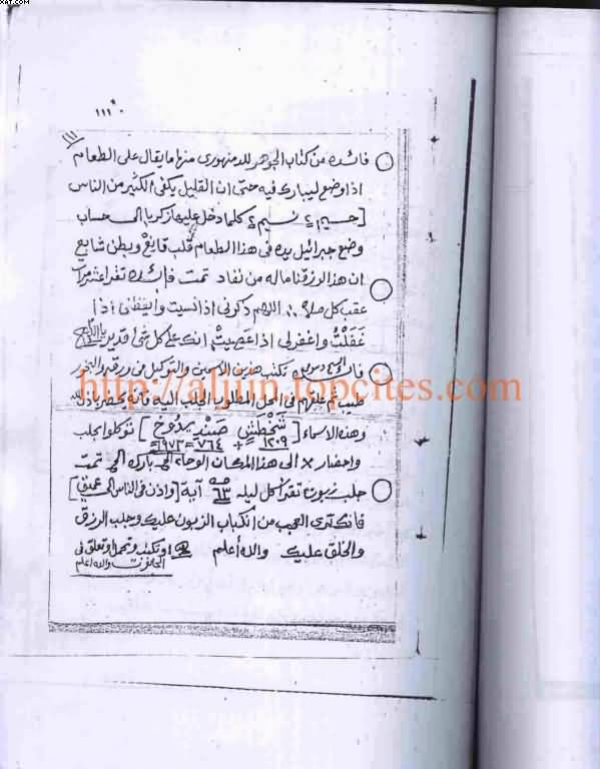 XAT.COM
١١١
١١١
فائدة من كتاب الجوهر للدمنهورى منها ما يقال على الطعام
اذا وضع ليبارك فيه حتى ان القليل يكفى الكثير من الناس
كلما دخل عليها زكريا الى حساب
وضع جبرائيل يده فى هذا الطعام قلب قانع وبطن شابع
ان هذا لرزقنا ماله من نفاد تمت فائدة تقرا عشر مرات
عقب كل صلاة اللهم ذكرنى اذا نسيت وايقظنى اذا
غَفَلْتُ واغفر لى اذا عَصَيتْ انك على كل شئ قدير
تكتب هذين الاسمين والتوكيل فى ورقه والبخور
طيب ثم علقهم فى المحل المطلوب الجلب اليه فانه يحضر باذن الله
وهذه الاسماء [ توكلوا بجلب
١٢٠٩ + ٧٦٤ = ١٩٧٣
واحضار × الى هذا المكان الوحا الى بارك الى تمت
جلب زبون تقرا كل ليله ٦٣ آية [واذن فى الناس الى عميق]
فانك ترى العجب من انكباب الزبون عليك وجلب الرزق
والخلق عليك والله أعلم او تكتب وتحمل او تعلق فى
الحانوت والله اعلم
http://aljiin.topcites.com